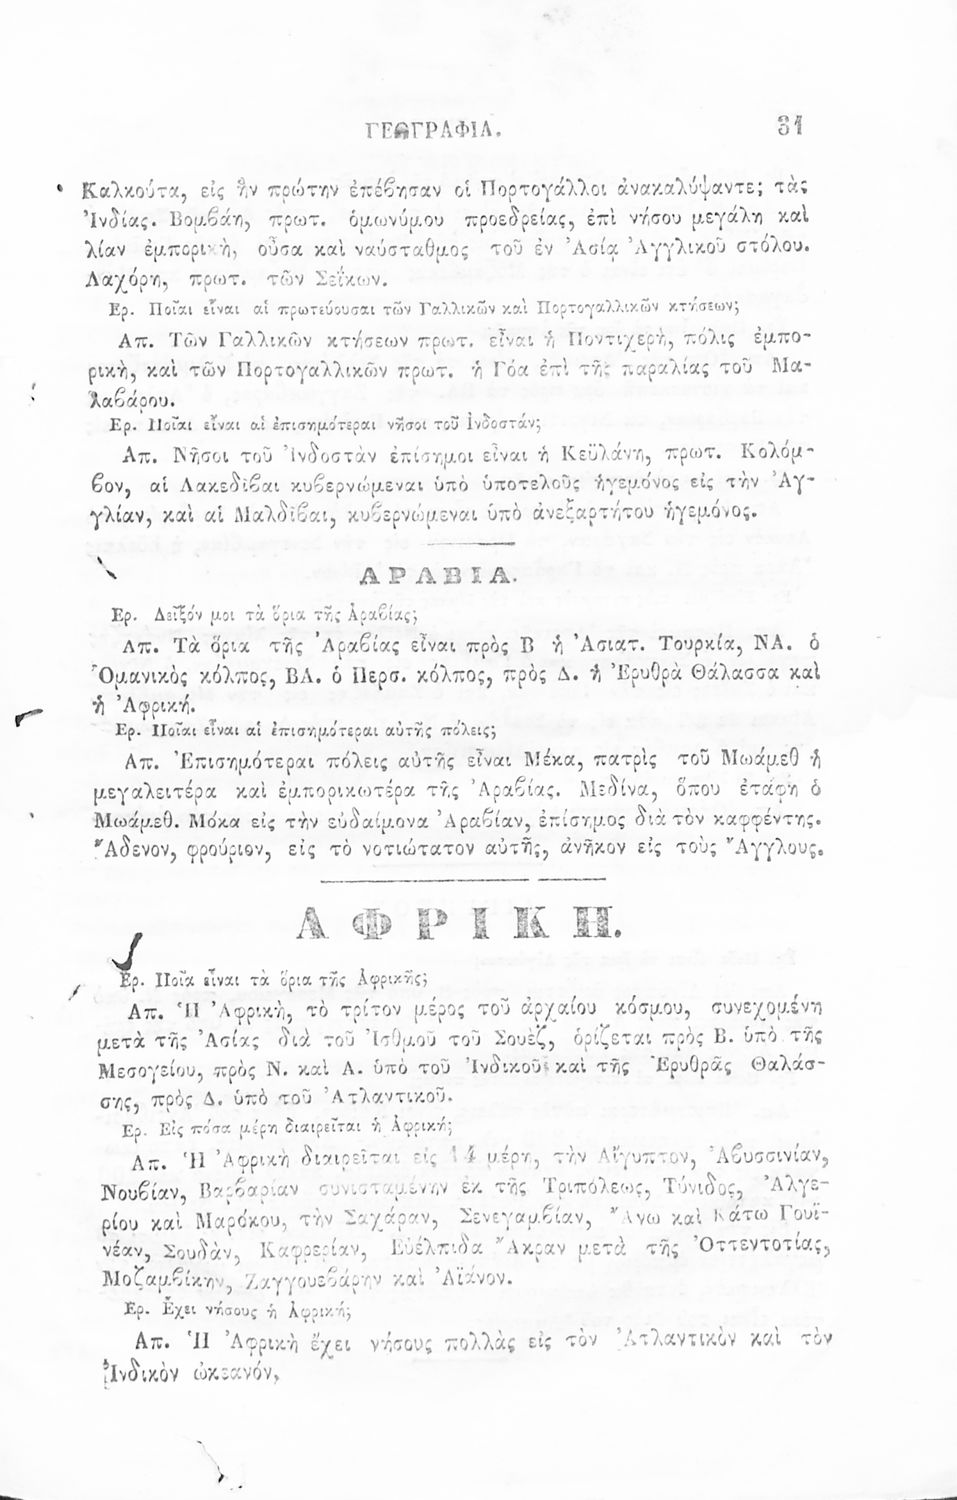 ΓΕΩΓΡΑΦΙΑ. 31
Καλκούτα, εἰς ἣν πρώτην ἐπέβησαν οἱ Πορτογάλλοι ἀνακαλύψαντες τὰς
Ἰνδίας. Βομβάη, πρωτ. ὁμωνύμου προεδρείας, ἐπὶ νήσου μεγάλη καὶ
λίαν ἐμπορικὴ, οὖσα καὶ ναύσταθμος τοῦ ἐν Ἀσίᾳ Ἀγγλικοῦ στόλου.
Λαχόρη, πρωτ. τῶν Σεΐκων.
Ερ. Ποῖαι εἶναι αἱ πρωτεύουσαι τῶν Γαλλικῶν καὶ Πορτογαλλικῶν κτήσεων;
Απ. Τῶν Γαλλικῶν κτήσεων πρωτ. εἶναι ἡ Ποντιχερὴ, πόλις ἐμπο-
ρικὴ, καὶ τῶν Πορτογαλλικῶν πρωτ. ἡ Γόα ἐπὶ τῆς παραλίας τοῦ Μα-
λαβάρου.
Ερ. Ποῖαι εἶναι αἱ ἐπισημότεραι νῆσοι τοῦ Ἰνδοστάν;
Απ. Νῆσοι τοῦ Ἰνδοστὰν ἐπίσημοι εἶναι ἡ Κεϋλάνη, πρωτ. Κολόμ-
βον, αἱ Λακεδίβαι κυβερνώμεναι ὑπὸ ὑποτελοῦς ἡγεμόνος εἰς τὴν Ἀγ-
γλίαν, καὶ αἱ Μαλδίβαι, κυβερνώμεναι ὑπὸ ἀνεξαρτήτου ἡγεμόνος.
ΑΡΑΒΙΑ.
Ερ. Δεῖξόν μοι τὰ ὅρια τῆς Ἀραβίας;
Απ. Τὰ ὅρια τῆς Ἀραβίας εἶναι πρὸς Β ἡ Ἀσιατ. Τουρκία, ΝΑ. ὁ
Ὀμανικὸς κόλπος, ΒΑ. ὁ Περσ. κόλπος, πρὸς Δ. ἡ Ἐρυθρὰ Θάλασσα καὶ
ἡ Ἀφρική.
Ερ. Ποῖαι εἶναι αἱ ἐπισημότεραι αὐτῆς πόλεις;
Απ. Ἐπισημότεραι πόλεις αὐτῆς εἶναι Μέκα, πατρὶς τοῦ Μωάμεθ ἡ
μεγαλειτέρα καὶ ἐμπορικωτέρα τῆς Ἀραβίας. Μεδίνα, ὅπου ἐτάφη ὁ
Μωάμεθ. Μόκα εἰς τὴν εὐδαίμονα Ἀραβίαν, ἐπίσημος διὰ τὸν καφφέντης.
Ἄδενον, φρούριον, εἰς τὸ νοτιώτατον αὐτῆς, ἀνῆκον εἰς τοὺς Ἄγγλους.
ΑΦΡΙΚΗ.
Ερ. Ποῖα εἶναι τὰ ὅρια τῆς Ἀφρικῆς;
Απ. Ἡ Ἀφρικὴ, τὸ τρίτον μέρος τοῦ ἀρχαίου κόσμου, συνεχομένη
μετὰ τῆς Ἀσίας διὰ τοῦ Ἰσθμοῦ τοῦ Σουὲζ, ὁρίζεται πρὸς Β. ὑπὸ τῆς
Μεσογείου, πρὸς Ν. καὶ Α. ὑπὸ τοῦ Ἰνδικοῦ καὶ τῆς Ἐρυθρᾶς Θαλάσ-
σης, πρὸς Δ. ὑπὸ τοῦ Ἀτλαντικοῦ.
Ερ. Εἰς πόσα μέρη διαιρεῖται ἡ Ἀφρική;
Απ. Ἡ Ἀφρικὴ διαιρεῖται εἰς 14 μέρη, τὴν Αἴγυπτον, Ἀβυσσινίαν,
Νουβίαν, Βαρβαρίαν συνισταμένην ἐκ τῆς Τριπόλεως, Τύνιδος, Ἀλγε-
ρίου καὶ Μαρόκου, τὴν Σαχάραν, Σενεγαμβίαν, Ἄνω καὶ Κάτω Γουϊ-
νέαν, Σουδὰν, Καφρερίαν, Εὐέλπιδα Ἄκραν μετὰ τῆς Ὀττεντοτίας,
Μοζαμβίκην, Ζαγγουεβάρην καὶ Ἀϊάνον.
Ερ. Ἔχει νήσους ἡ Ἀφρική;
Απ. Ἡ Ἀφρικὴ ἔχει νήσους πολλὰς εἰς τὸν Ἀτλαντικὸν καὶ τὸν
Ἰνδικὸν ὠκεανόν,